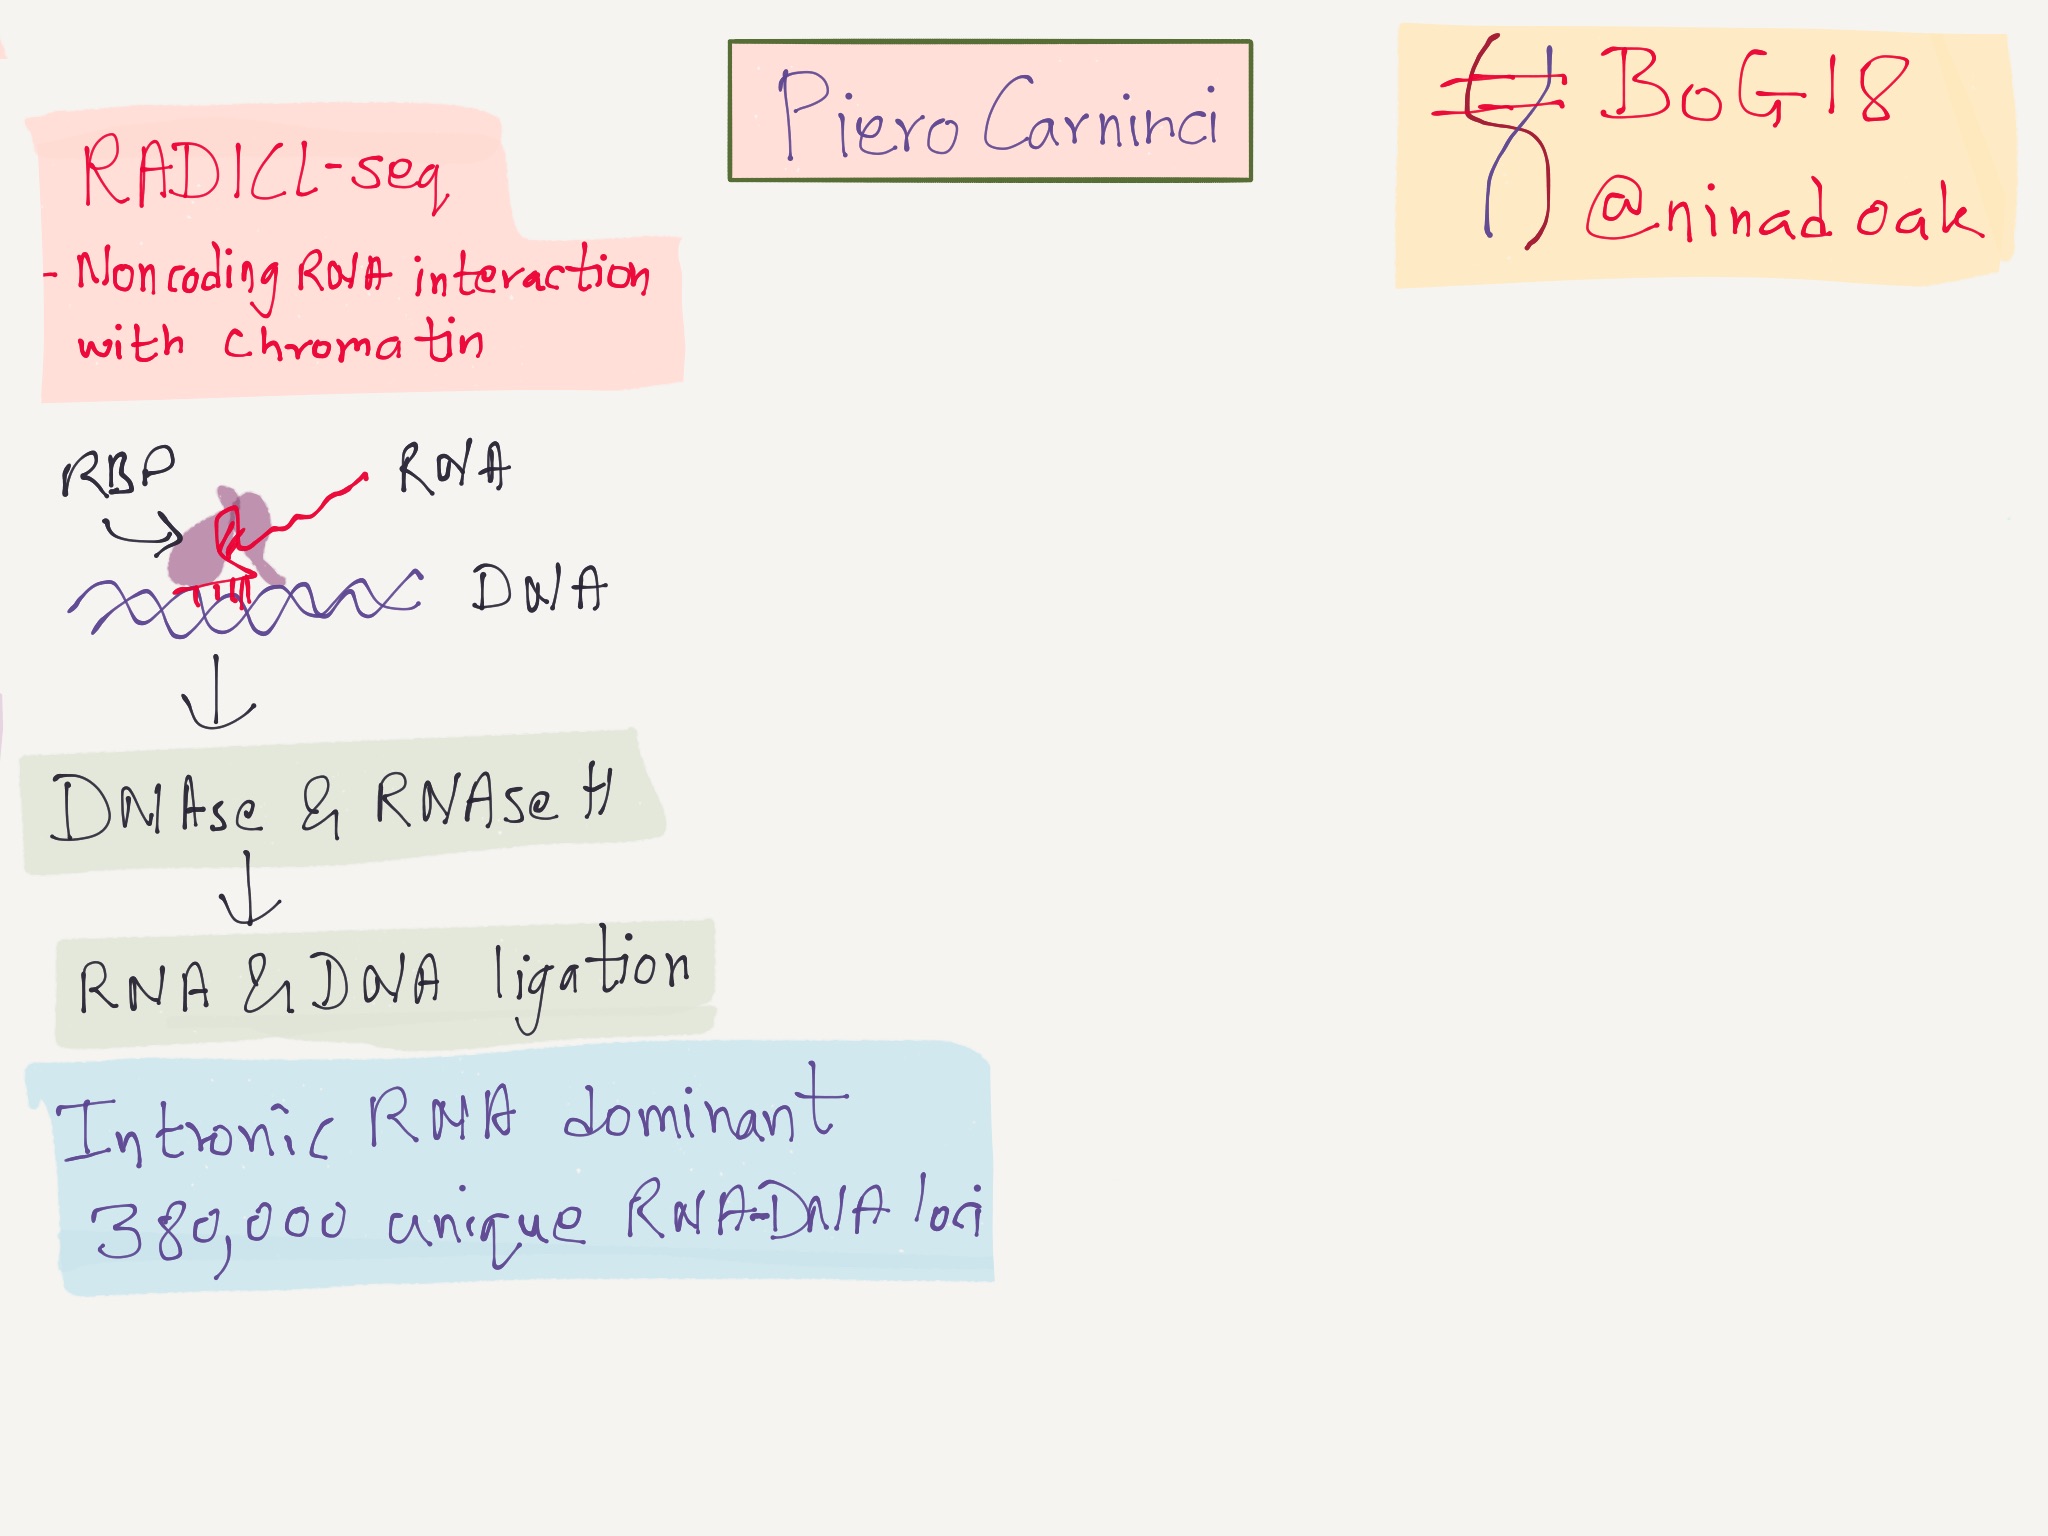 Piero Carninci
#BoG18
@ninadoak
RADICL-seq
- Noncoding RNA interaction
with chromatin
RBP
RNA
DNA
DNAse & RNAse H
RNA & DNA ligation
Intronic RNA dominant
380,000 unique RNA-DNA loci